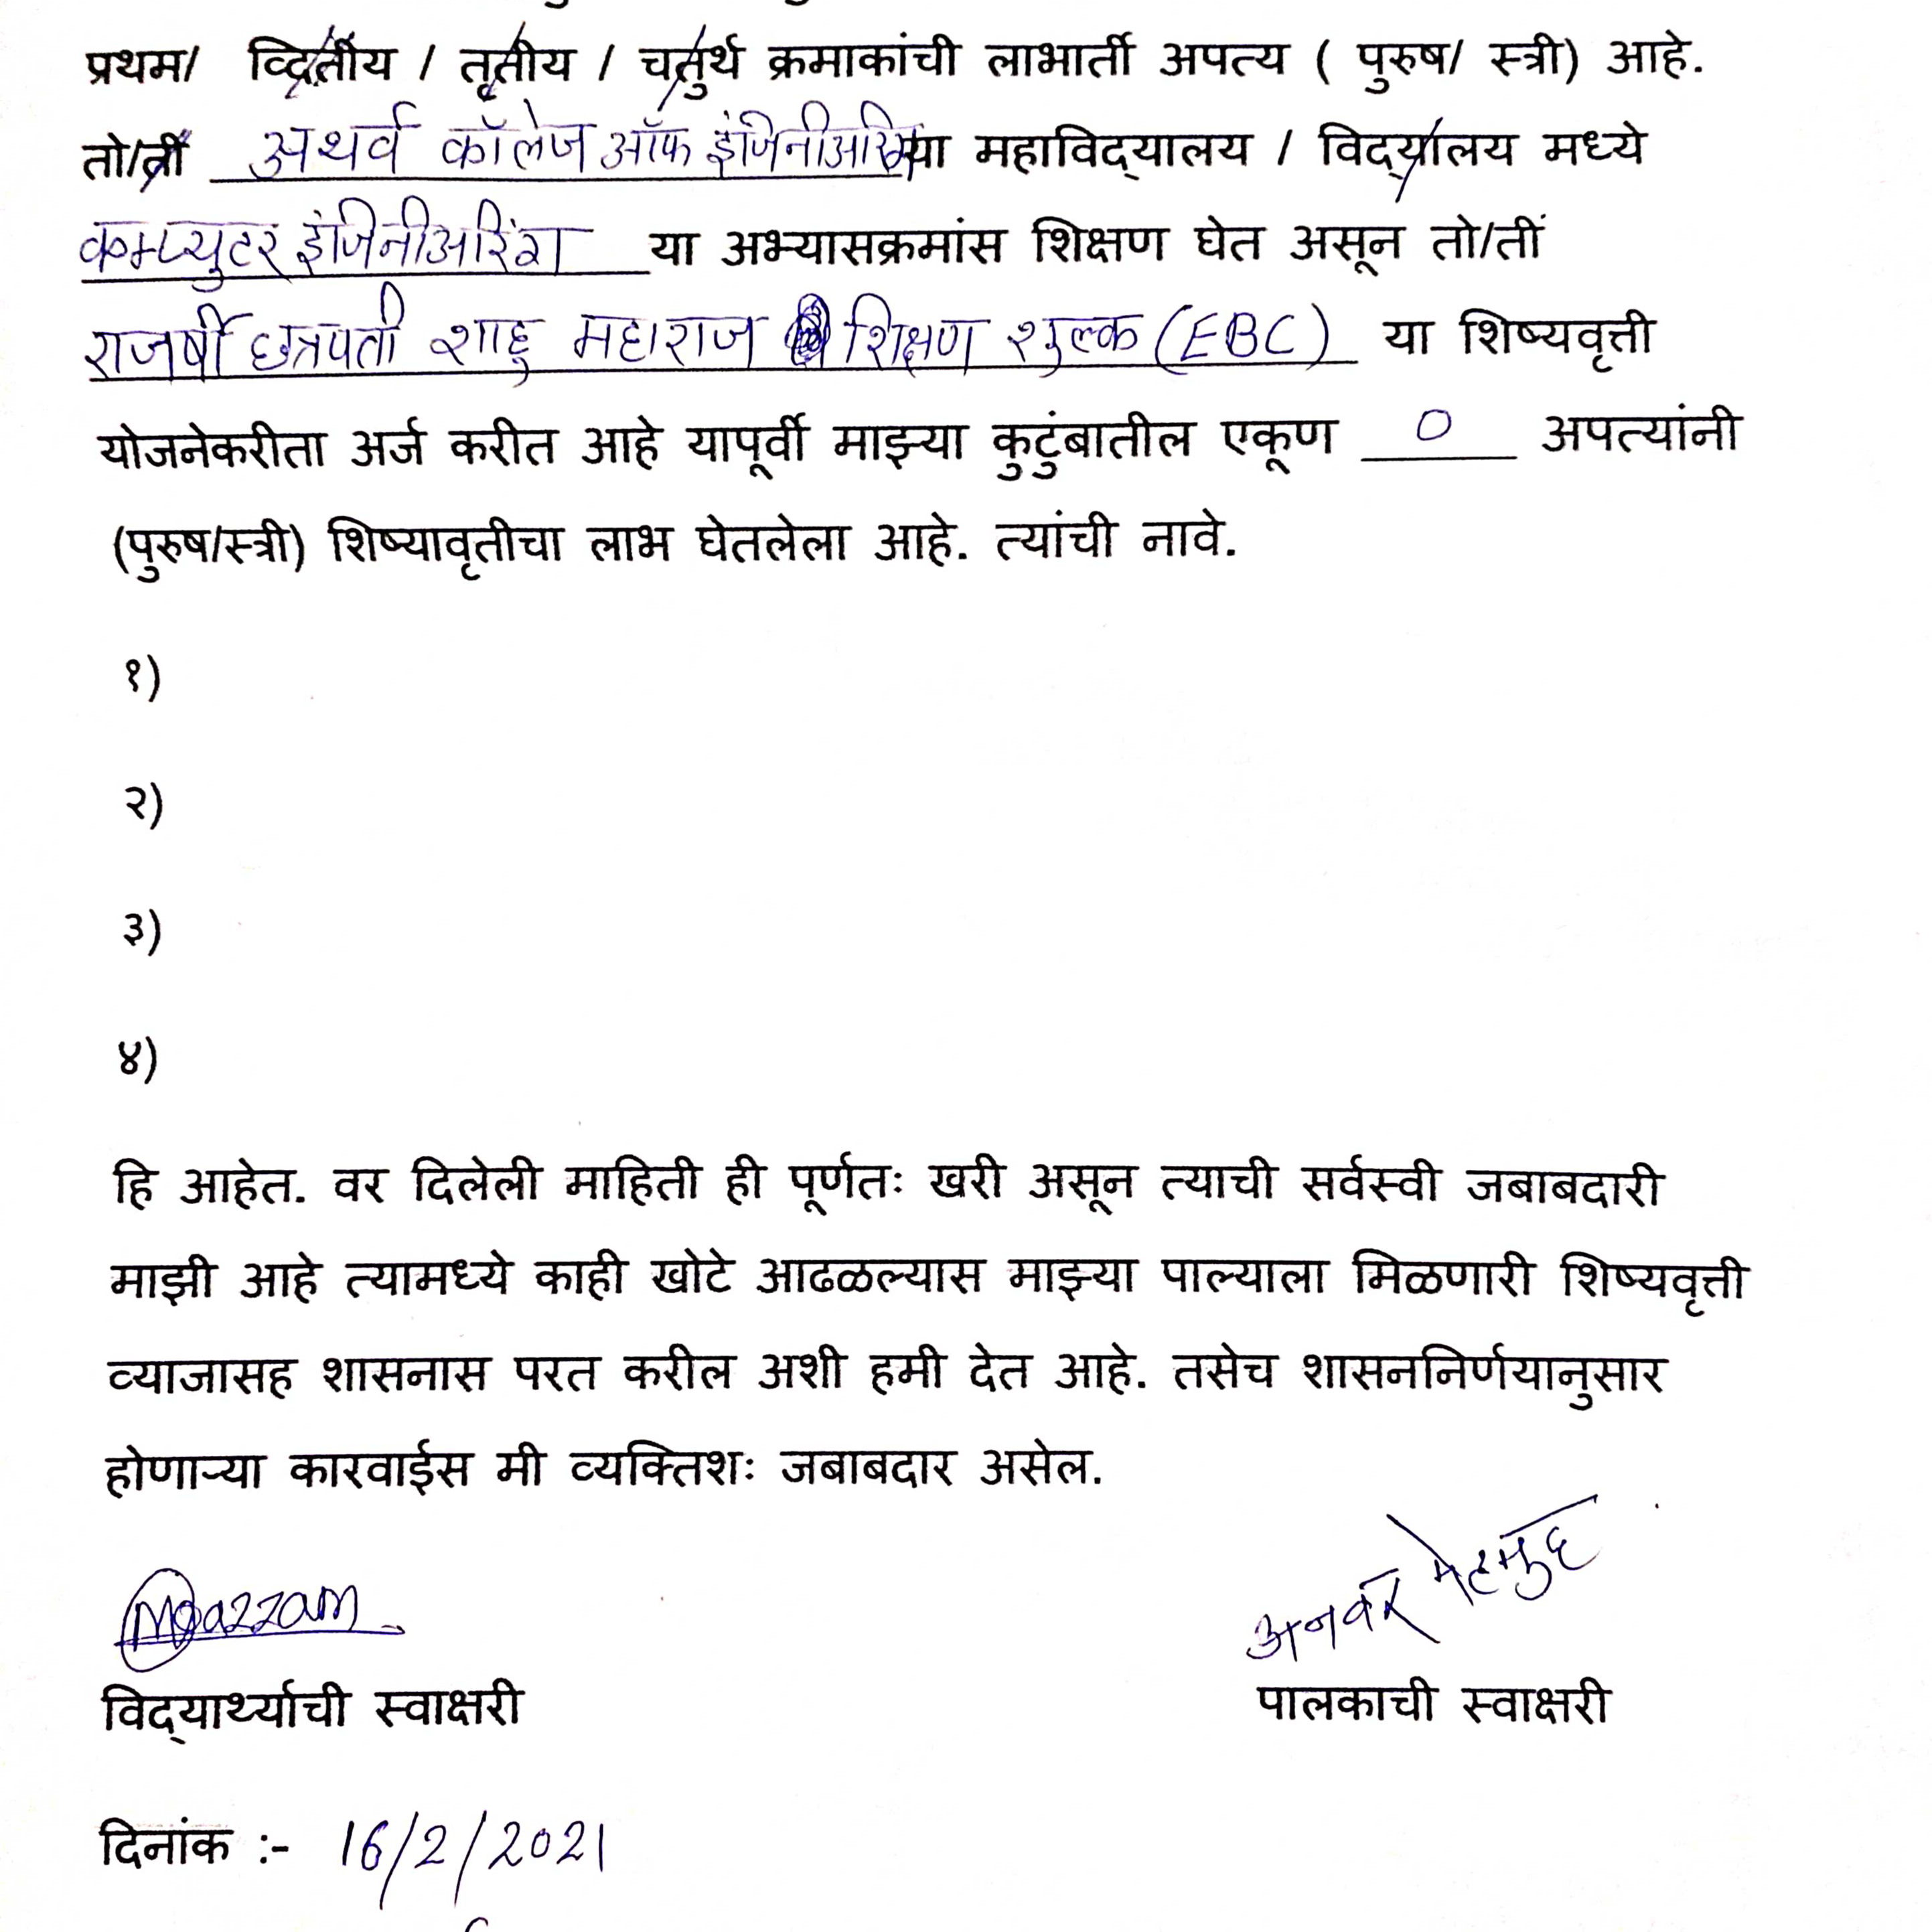 प्रथम/ व्दितीय / तृतीय / चतुर्थ क्रमाकांची लाभार्ती अपत्य ( पुरुष/ स्त्री) आहे.
तो/ती अथर्व कॉलेज ऑफ इंजिनीअरिंग या महाविद्यालय / विद्यालय मध्ये
कम्प्युटर इंजिनीअरिंग या अभ्यासक्रमांस शिक्षण घेत असून तो/तीं
राजर्षी छत्रपती शाहु महाराज शिक्षण शुल्क (EBC) या शिष्यवृत्ती
योजनेकरीता अर्ज करीत आहे यापूर्वी माझ्या कुटुंबातील एकूण 0 अपत्यांनी
(पुरुष/स्त्री) शिष्यावृतीचा लाभ घेतलेला आहे. त्यांची नावे.
१)
२)
३)
४)
हि आहेत. वर दिलेली माहिती ही पूर्णतः खरी असून त्याची सर्वस्वी जबाबदारी
माझी आहे त्यामध्ये काही खोटे आढळल्यास माझ्या पाल्याला मिळणारी शिष्यवृत्ती
व्याजासह शासनास परत करील अशी हमी देत आहे. तसेच शासननिर्णयानुसार
होणाऱ्या कारवाईस मी व्यक्तिशः जबाबदार असेल.
अनवर
विद्यार्थ्याची स्वाक्षरी पालकाची स्वाक्षरी
दिनांक :- 16/2/2021